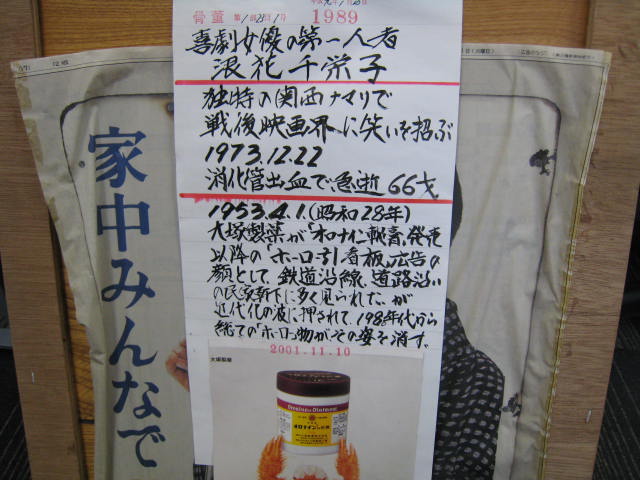 骨董 1989
喜劇女優の第一人者
浪花千栄子
独特の関西ナマリで
戦後映画界に笑いを招ぶ
1973.12.22
消化管出血で急逝 66才
1953.4.1(昭和28年)
大塚製薬が「オロナイン軟膏」発売
以降の「ホーロー引看板」広告の
顔として、鉄道沿線、道路沿い
の民家軒下に多く見られた、が
近代化の波に押されて、198年代から
総ての「ホーロー」物がその姿を消す。
2001.11.10
大塚製薬
Oronine Ointment
オロナイン
家中みんなで